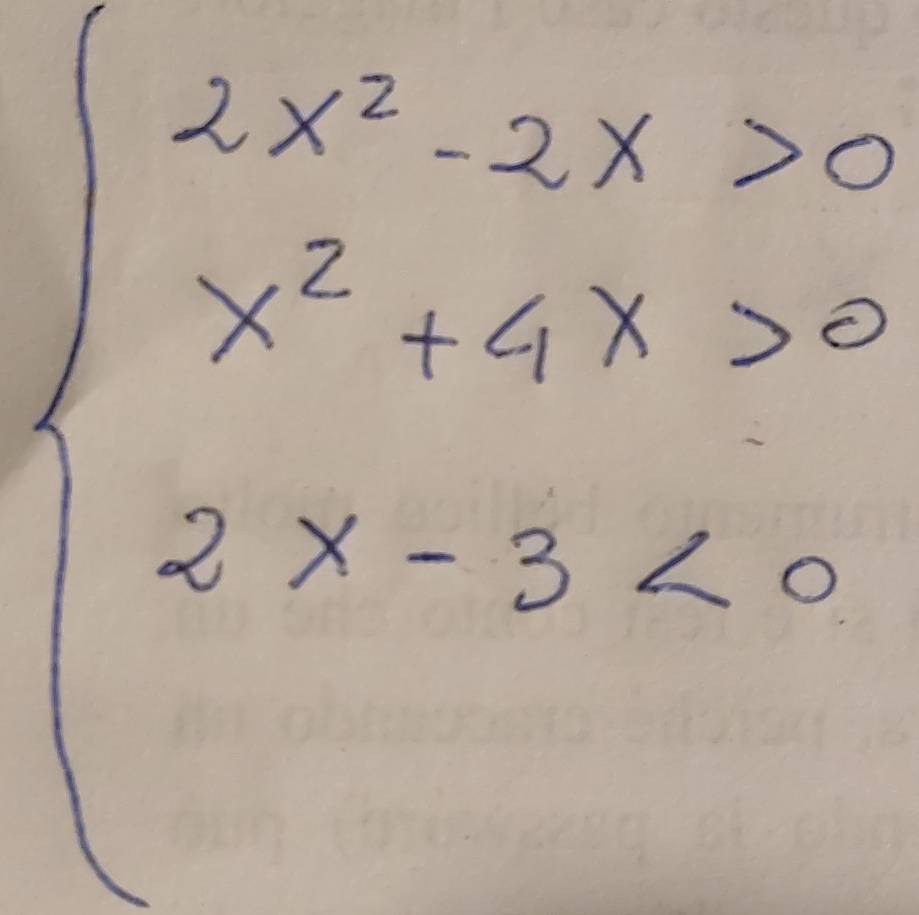 2x² - 2x > 0
x² + 4x > 0
2x - 3 < 0